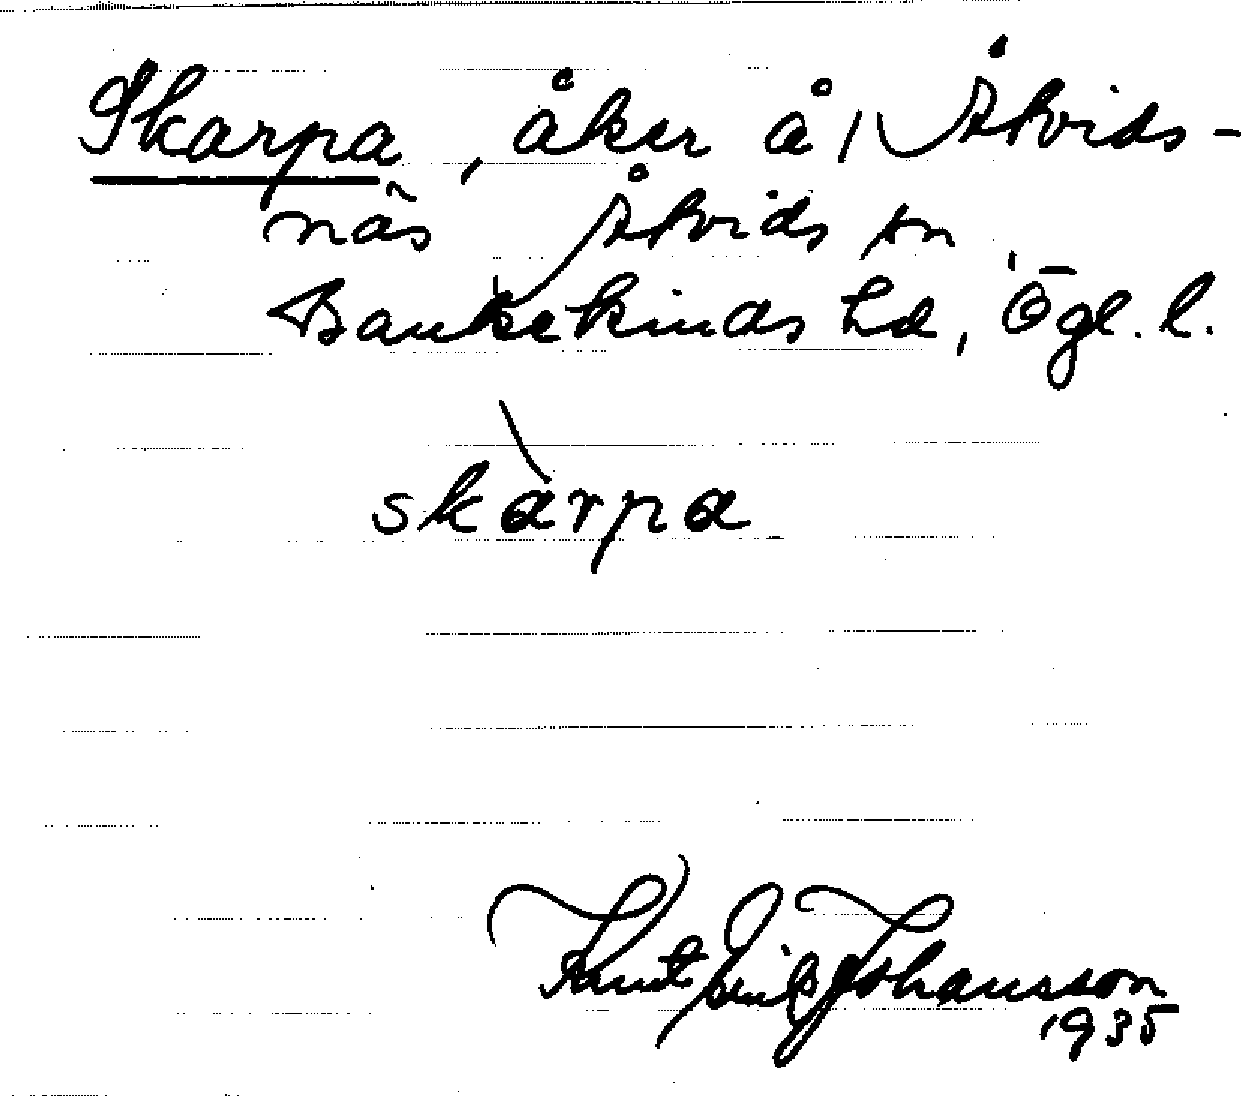 Skarpa, åker å 1 Åtvids-
näs Åtvids sn
Bankekinds hd, Ögl. l.
skàrpa
Knut Erik Johansson
1935